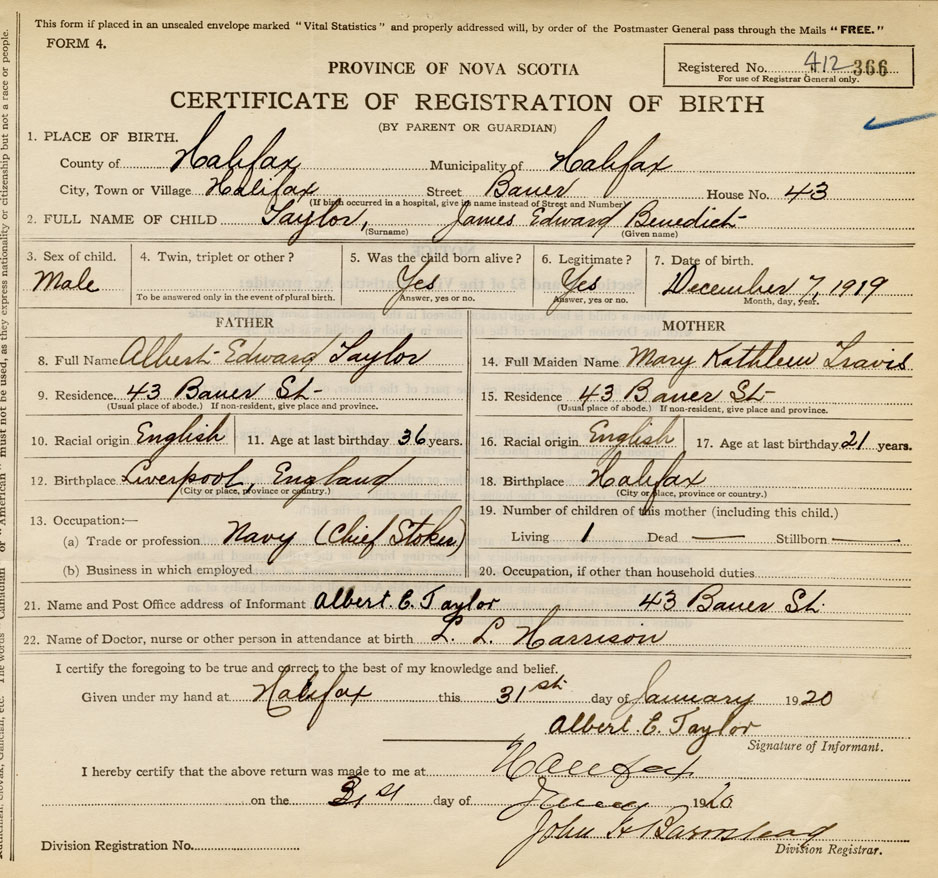 This form if placed in an unsealed envelope marked "Vital Statistics" and properly addressed will, by order of the Postmaster General pass through the Mails "FREE."
FORM 4.
Registered No. 412 366
For use of Registrar General only.
PROVINCE OF NOVA SCOTIA
CERTIFICATE OF REGISTRATION OF BIRTH
(BY PARENT OR GUARDIAN)
1. PLACE OF BIRTH.
County of Halifax Municipality of Halifax
City, Town or Village Halifax Street Bauer House No. 43
(If birth occurred in a hospital, give its name instead of Street and Number)
2. FULL NAME OF CHILD Taylor, James Edward Benedict
(Surname) (Given name)
3. Sex of child. 4. Twin, triplet or other? 5. Was the child born alive? 6. Legitimate? 7. Date of birth.
Male Yes Yes December 7, 1919
To be answered only in the event of plural birth. Answer, yes or no. Answer, yes or no. Month, day, year.
FATHER MOTHER
8. Full Name Albert Edward Taylor 14. Full Maiden Name Mary Kathleen Travis
9. Residence 43 Bauer St 15. Residence 43 Bauer St
(Usual place of abode.) If non-resident, give place and province. (Usual place of abode.) If non-resident, give place and province.
10. Racial origin English 11. Age at last birthday 36 years. 16. Racial origin English 17. Age at last birthday 21 years.
12. Birthplace Liverpool, England 18. Birthplace Halifax
(City or place, province or country.) (City or place, province or country.)
13. Occupation:— 19. Number of children of this mother (including this child.)
(a) Trade or profession Navy (Chief Stoker) Living 1 Dead — Stillborn —
(b) Business in which employed 20. Occupation, if other than household duties
21. Name and Post Office address of Informant Albert. E. Taylor 43 Bauer St.
22. Name of Doctor, nurse or other person in attendance at birth L. L. Harrison
I certify the foregoing to be true and correct to the best of my knowledge and belief.
Given under my hand at Halifax this 31st day of January 1920
Albert. E. Taylor
Signature of Informant.
I hereby certify that the above return was made to me at Halifax
on the 31st day of 1920
John
Division Registration No. Division Registrar.
must not be used, as they express nationality or citizenship but not a race or people.
The words "Canadian" or "American"